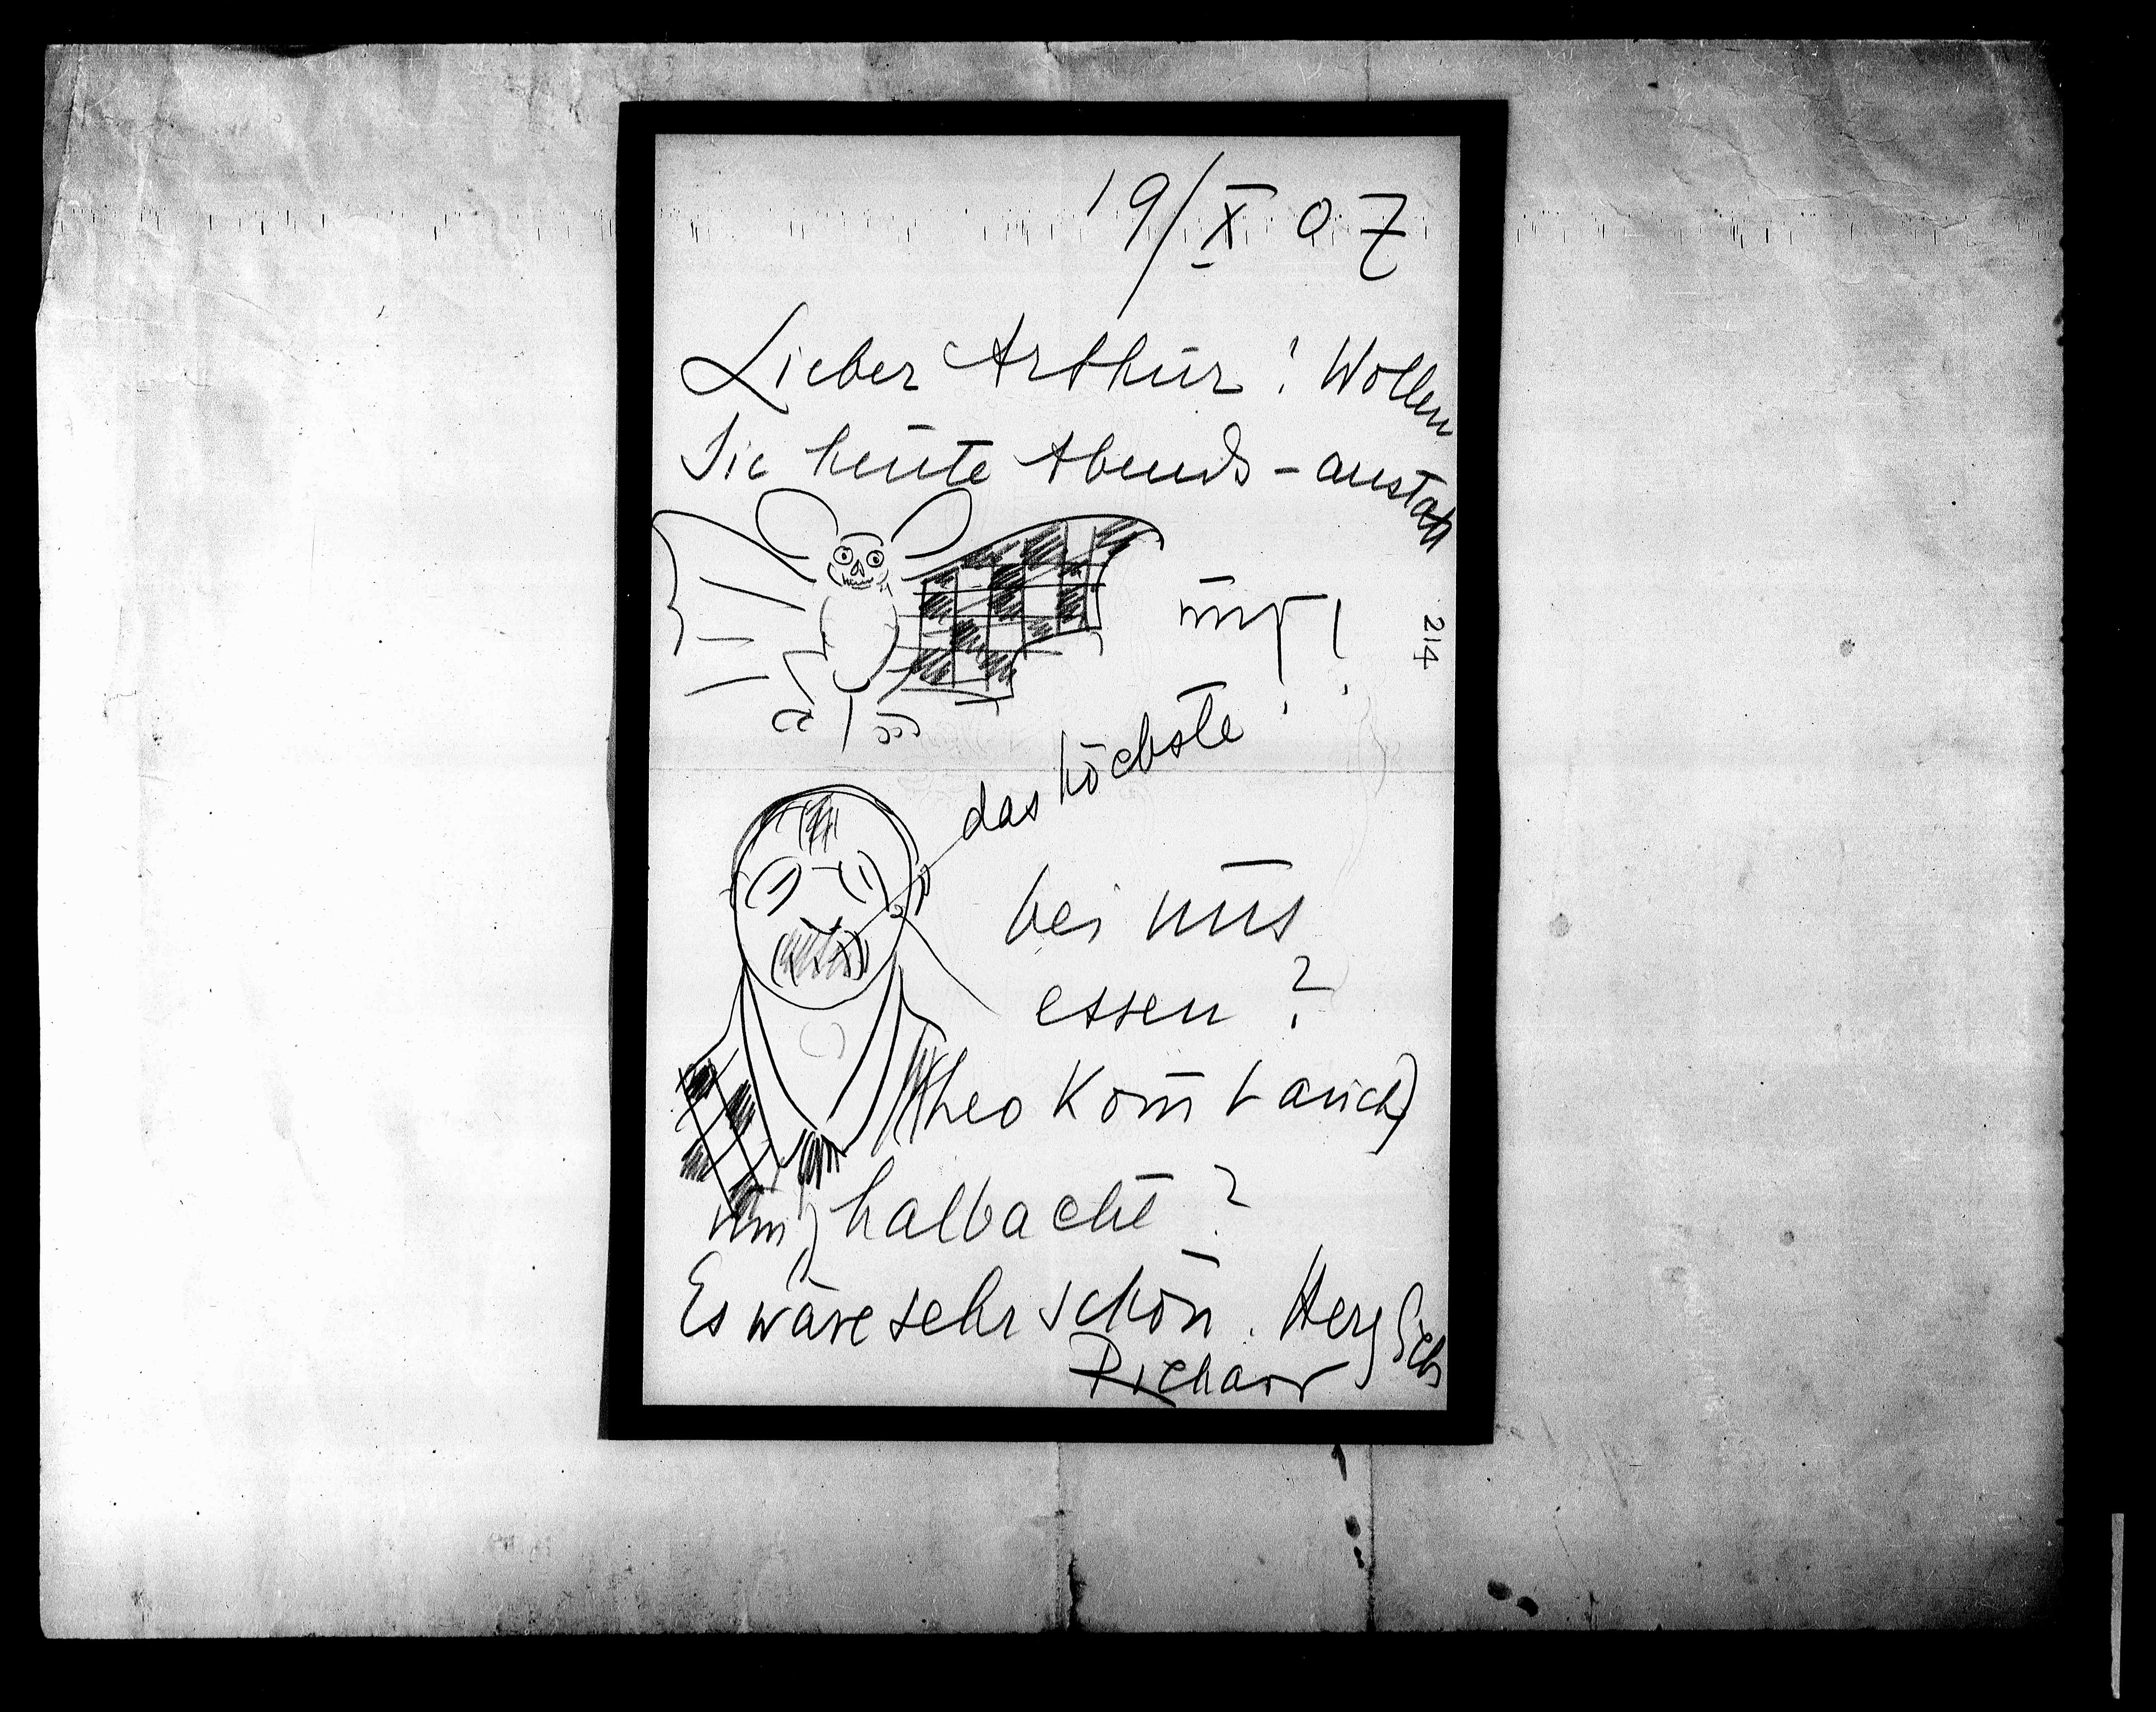 19/X 07
Lieber Arthur! Wollen
Sie heute Abends – anstatt
mit!
214
das höchste!
bei uns
essen?
Theo kom̅t auch)
um halbacht?
Es wäre sehr schön. Herzlich
Richard